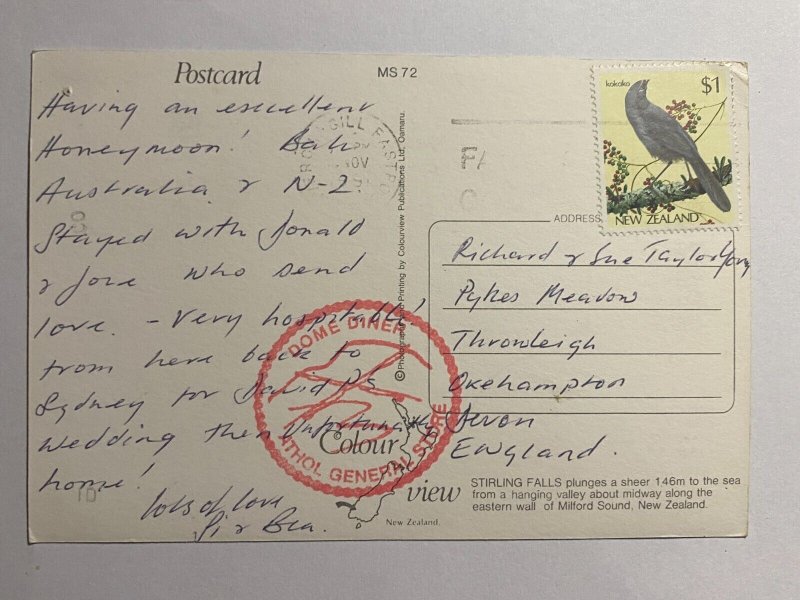 Postcard
MS 72
Having an excellent
Honeymoon! Bali
Australia & N-Z.
Stayed with Jonald
& Jose who send
love. - Very hospitable!
from here back to
Sydney for David P's
Wedding then Unfortunately
home!
lots of love
& Bea.
©Photography and Printing by Colourview Publications Ltd, Oamaru.
kokako
$1
NEW ZEALAND
ADDRESS
Richard & Sue Taylor
Pykes Meadow
Throwleigh
Okehampton
Devon
England.
DOME DINER
ATHOL GENERAL STORE
Colour
view
New Zealand.
STIRLING FALLS plunges a sheer 146m to the sea
from a hanging valley about midway along the
eastern wall of Milford Sound, New Zealand.